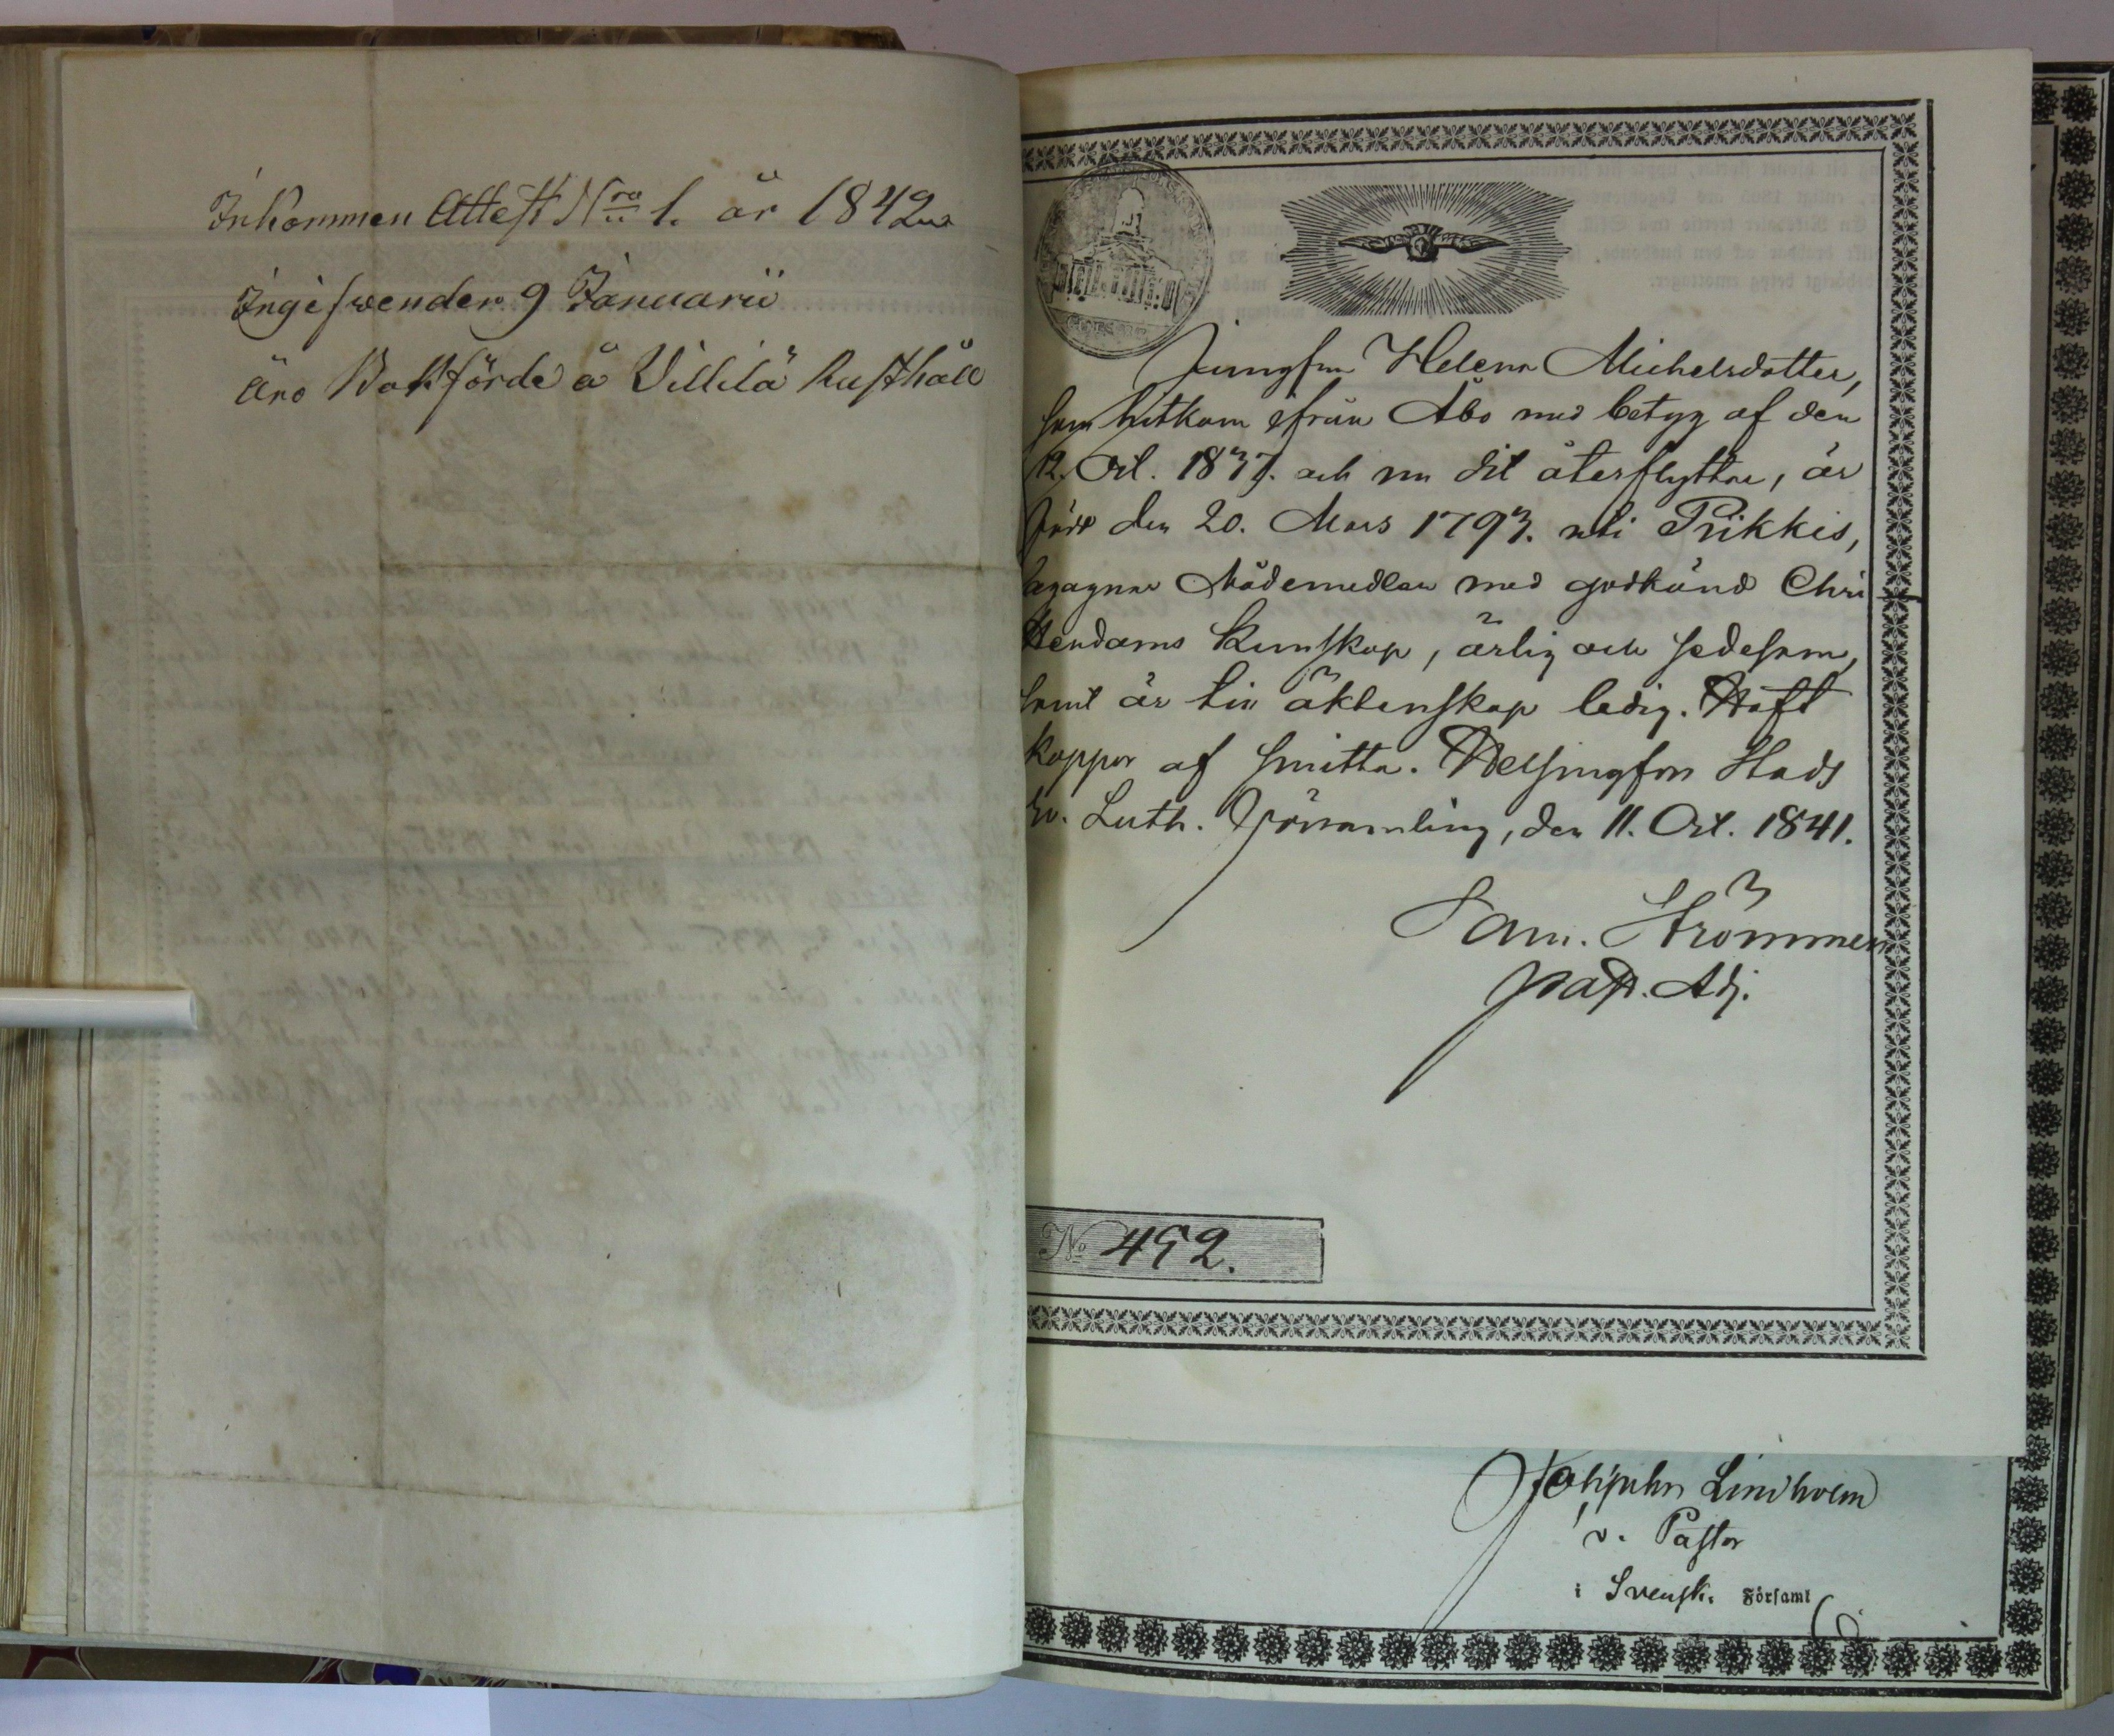 Inkommen Attest Nro 1. år 1842
Ingifwen den 9 Januarii
äro Bokförde å Villilä Rusthåll
Jungfru Helena Michelsdotter,
som hitkom ifrån Åbo med betyg af den
12. Oct. 1837. och nu dit återflyttar, är
född den 20. Mars 1793. uti Pikkis,
begagnar Nådemedlen med godkänd Chri
stendoms kunskap, ärlig och sedesam,
samt är till äktenskap ledig. Haft
koppor af smitta. Helsingfors Stads
Ev. Luth. Församling, den 11. Oct. 1841.
Sam. Strömmer
past. Adj.
No 452.
Lindholm
v. Pastor
i Svensk. Församl